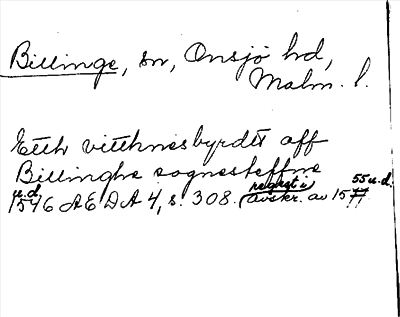 Billinge, sn, Onsjö hd,
Malm. l.
Etth vitthnesbyrdtt aff
Billinghe sognesteffne
u.d. 1546 AE DA 4, s. 308. (avskr. av 1577 55 u.d.